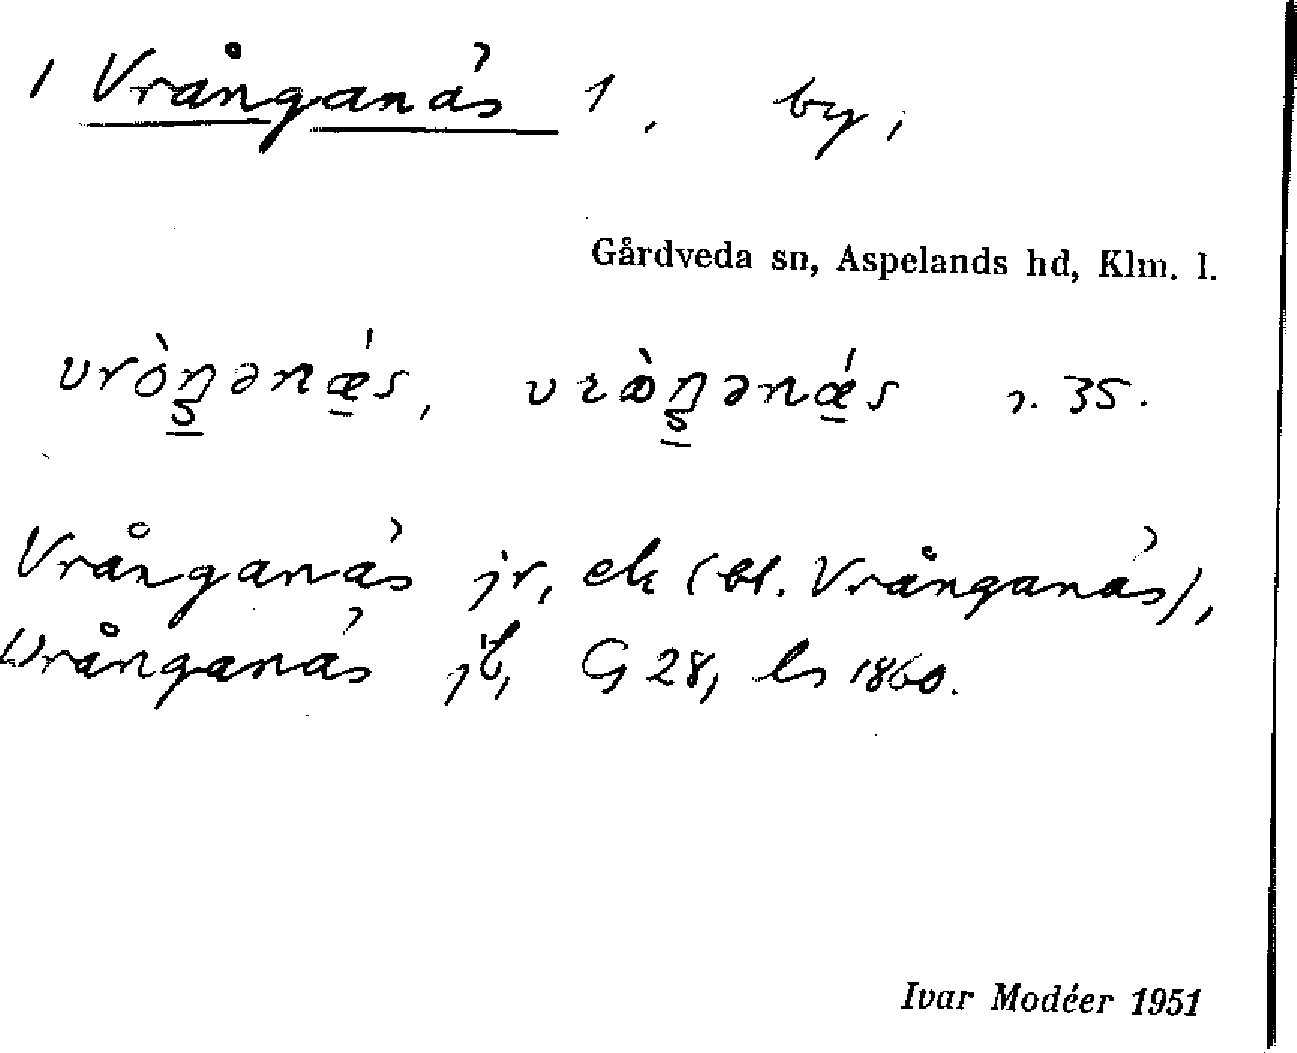 1 Vrånganäs 1, by,
Gårdveda sn, Aspelands hd, Klm. l.
vrò̱ŋənǽs, vròŋənǽs r. 35.
Vrånganäs jr, ek (bl. Vrånganäs),
Wrånganäs jb, G 28, ls 1860.
Ivar Modéer 1951